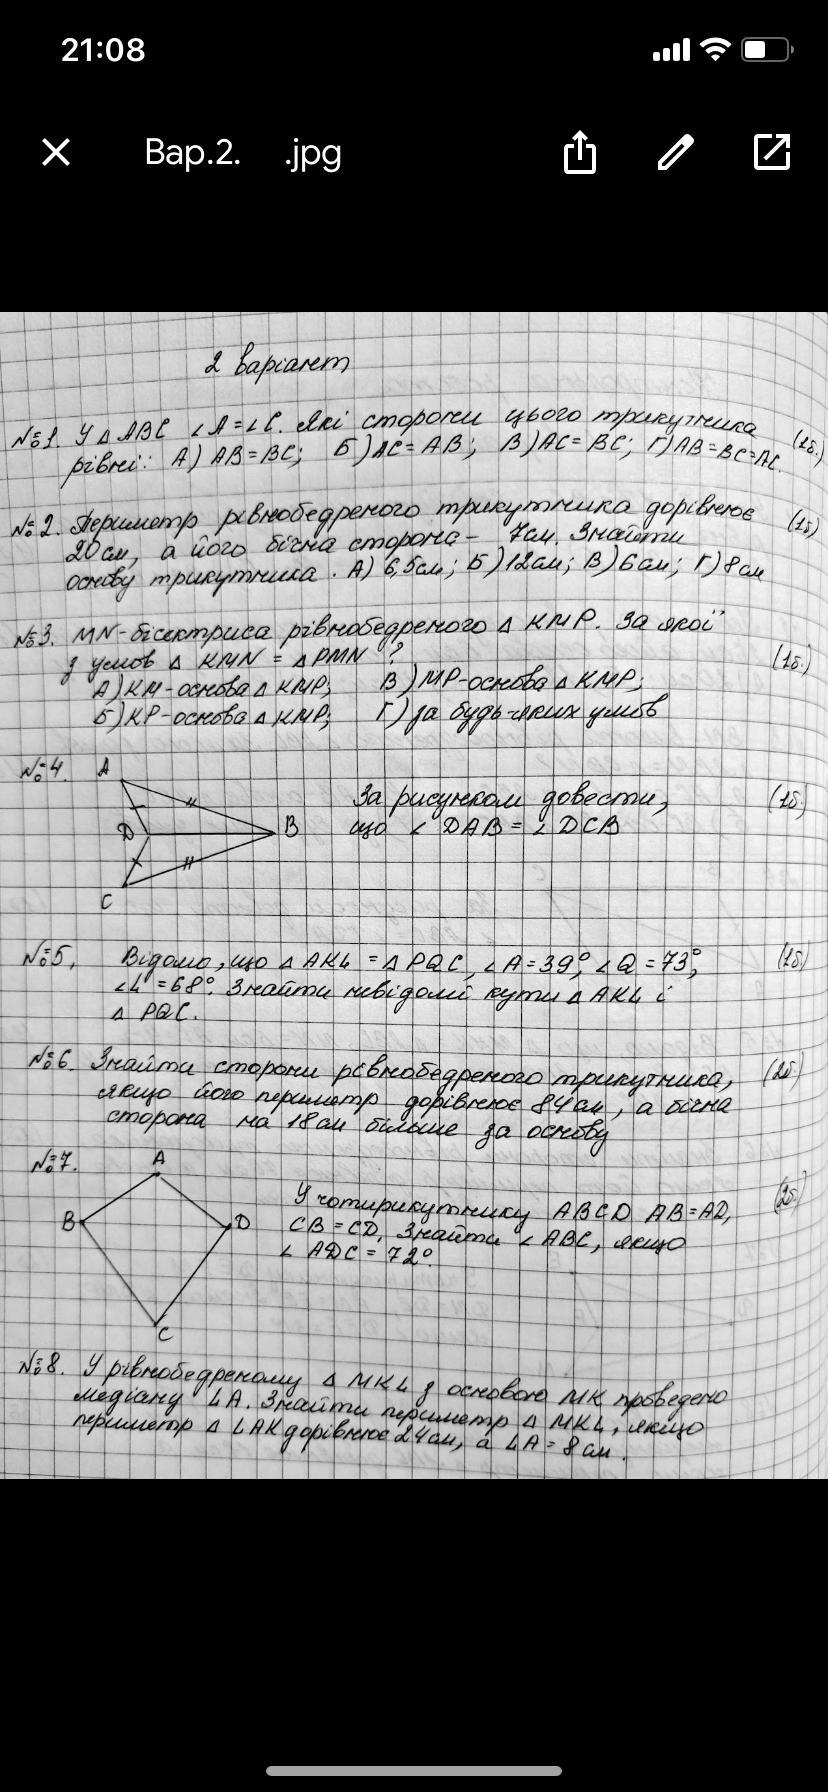 21:08
Вар.2. .jpg
2 варіант
№1. У △ ABC ∠A=∠C. Які сторони цього трикутника (1б.)
рівні: А) AB=BC; Б) AC=AB; В) AC=BC; Г) AB=BC=AC.
№2. Периметр рівнобедреного трикутника дорівнює (1б)
20см, а його бічна сторона – 7см. Знайти
основу трикутника. А) 6,5см; Б) 12см; В) 6см; Г) 8см
№3. MN-бісектриса рівнобедреного △ KMP. За якої
з умов △ KMN = △ PMN ? (1б.)
А) KM-основа △ KMP; В) MP-основа △ KMP;
Б) KP-основа △ KMP; Г) за будь-яких умов
№4. A
За рисунком довести, (1б.)
D B що ∠ DAB = ∠ DCB
C
№5. Відомо, що △ AKL = △ PQC, ∠A=39°, ∠Q=73°, (1б)
∠L=68°. Знайти невідомі кути △ AKL і
△ PQC.
№6. Знайти сторони рівнобедреного трикутника, (2б)
якщо його периметр дорівнює 84см, а бічна
сторона на 18см більше за основу
№7. A
У чотирикутнику ABCD AB=AD, (2б)
B D CB=CD. Знайти ∠ ABC, якщо
∠ ADC = 72°.
C
№8. У рівнобедреному △ MKL з основою MK проведено
медіану LA. Знайти периметр △ MKL, якщо
периметр △ LAK дорівнює 24см, а LA=8см.